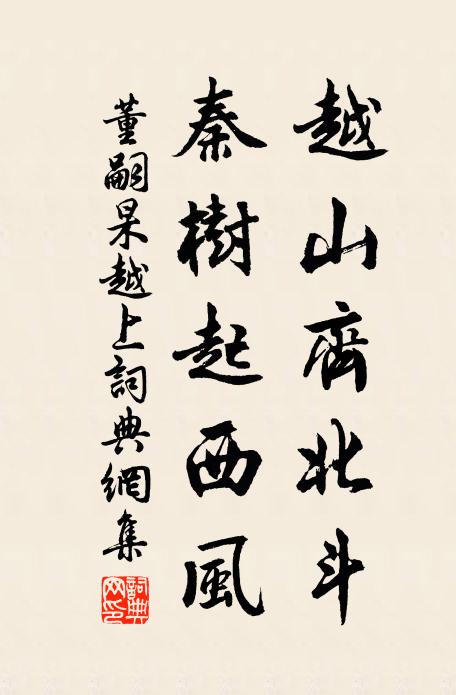 越山齊北斗
秦樹起西風
董嗣杲越上詞典網集
詞典網印